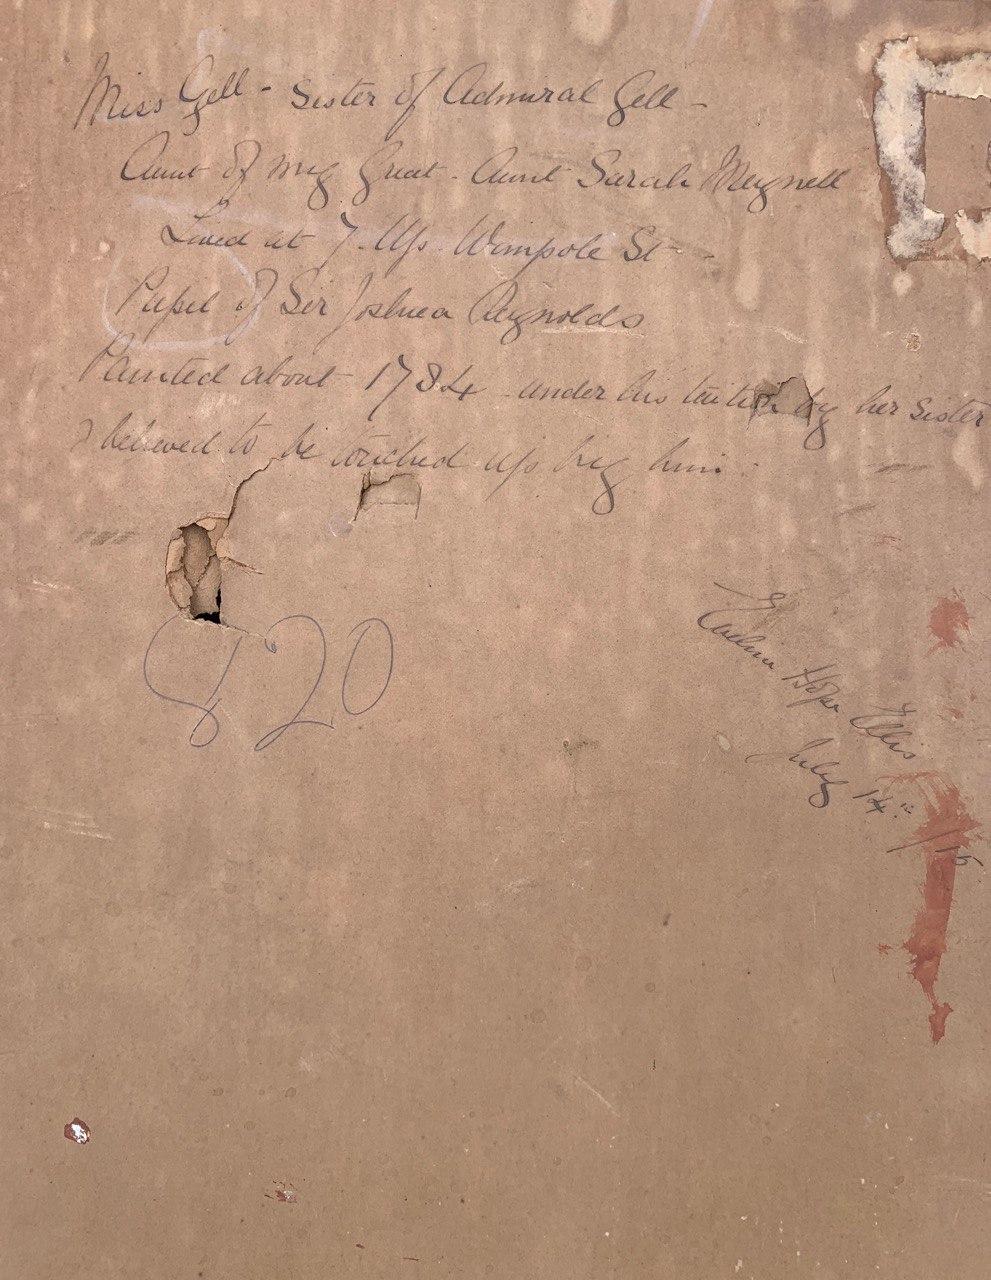 Miss Gell - Sister of Admiral Gell -
Aunt of my Great - Aunt Sarah Meynell
Lived at 7. Up. Wimpole St -
Pupil of Sir Joshua Reynolds
Painted about 1784 under his tuition by her sister
& believed to be touched up by him.
820
Hope Ellis
July 14th
/15